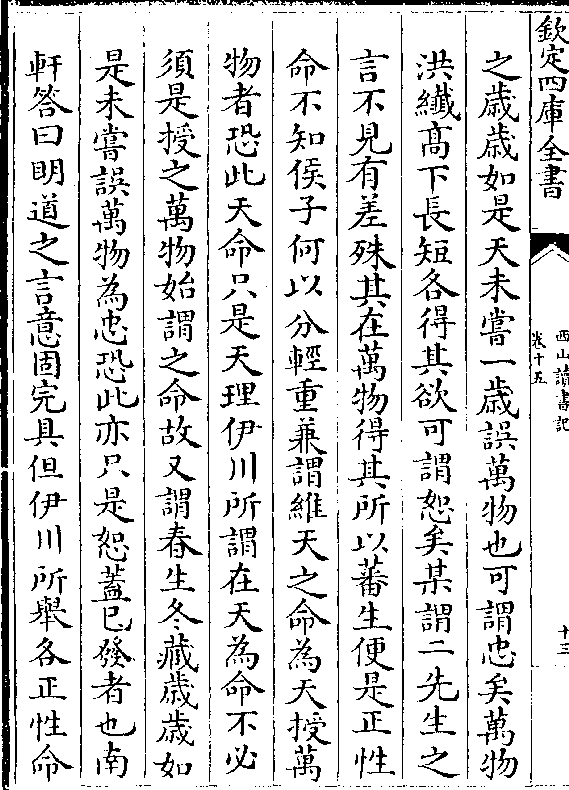 欽定四庫全書
西山讀書記
卷十五
十三
之歳歳如是天未嘗一歳誤萬物也可謂忠矣萬物
洪纖髙下長短各得其欲可謂恕矣某謂二先生之
言不見有差殊其在萬物得其所以蕃生便是正性
命不知侯子何以分輕重兼謂維天之命為天授萬
物者恐此天命只是天理伊川所謂在天為命不必
須是授之萬物始謂之命故又謂春生冬藏歳歳如
是未嘗誤萬物為忠恐此亦只是恕蓋已發者也南
軒答曰明道之言意固完具但伊川所舉各正性命